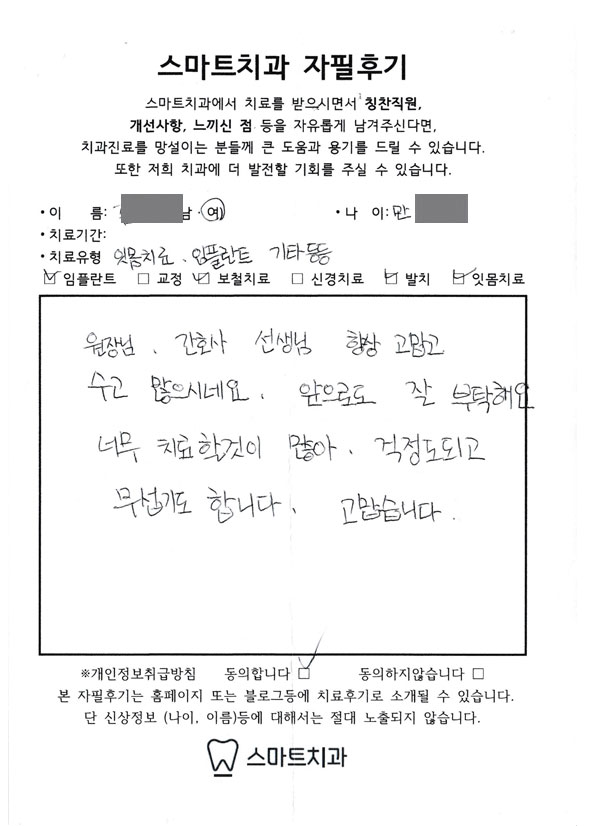 스마트치과 자필후기
스마트치과에서 치료를 받으시면서 칭찬직원,
개선사항, 느끼신 점 등을 자유롭게 남겨주신다면,
치과진료를 망설이는 분들께 큰 도움과 용기를 드릴 수 있습니다.
또한 저희 치과에 더 발전할 기회를 주실 수 있습니다.
• 이 름: 남 · 여) • 나 이: 만
• 치료기간:
• 치료유형 잇몸치료 . 임플란트 기타등등
☑ 임플란트 □ 교정 ☑ 보철치료 □ 신경치료 ☑ 발치 ☑ 잇몸치료
원장님 . 간호사 선생님 항상 고맙고
수고 많으시네요 . 앞으로도 잘 부탁해요
너무 치료할것이 많아 . 걱정도되고
무섭기도 합니다 . 고맙습니다 .
※개인정보취급방침 동의합니다 ☑ 동의하지않습니다 □
본 자필후기는 홈페이지 또는 블로그등에 치료후기로 소개될 수 있습니다.
단 신상정보 (나이, 이름)등에 대해서는 절대 노출되지 않습니다.
스마트치과